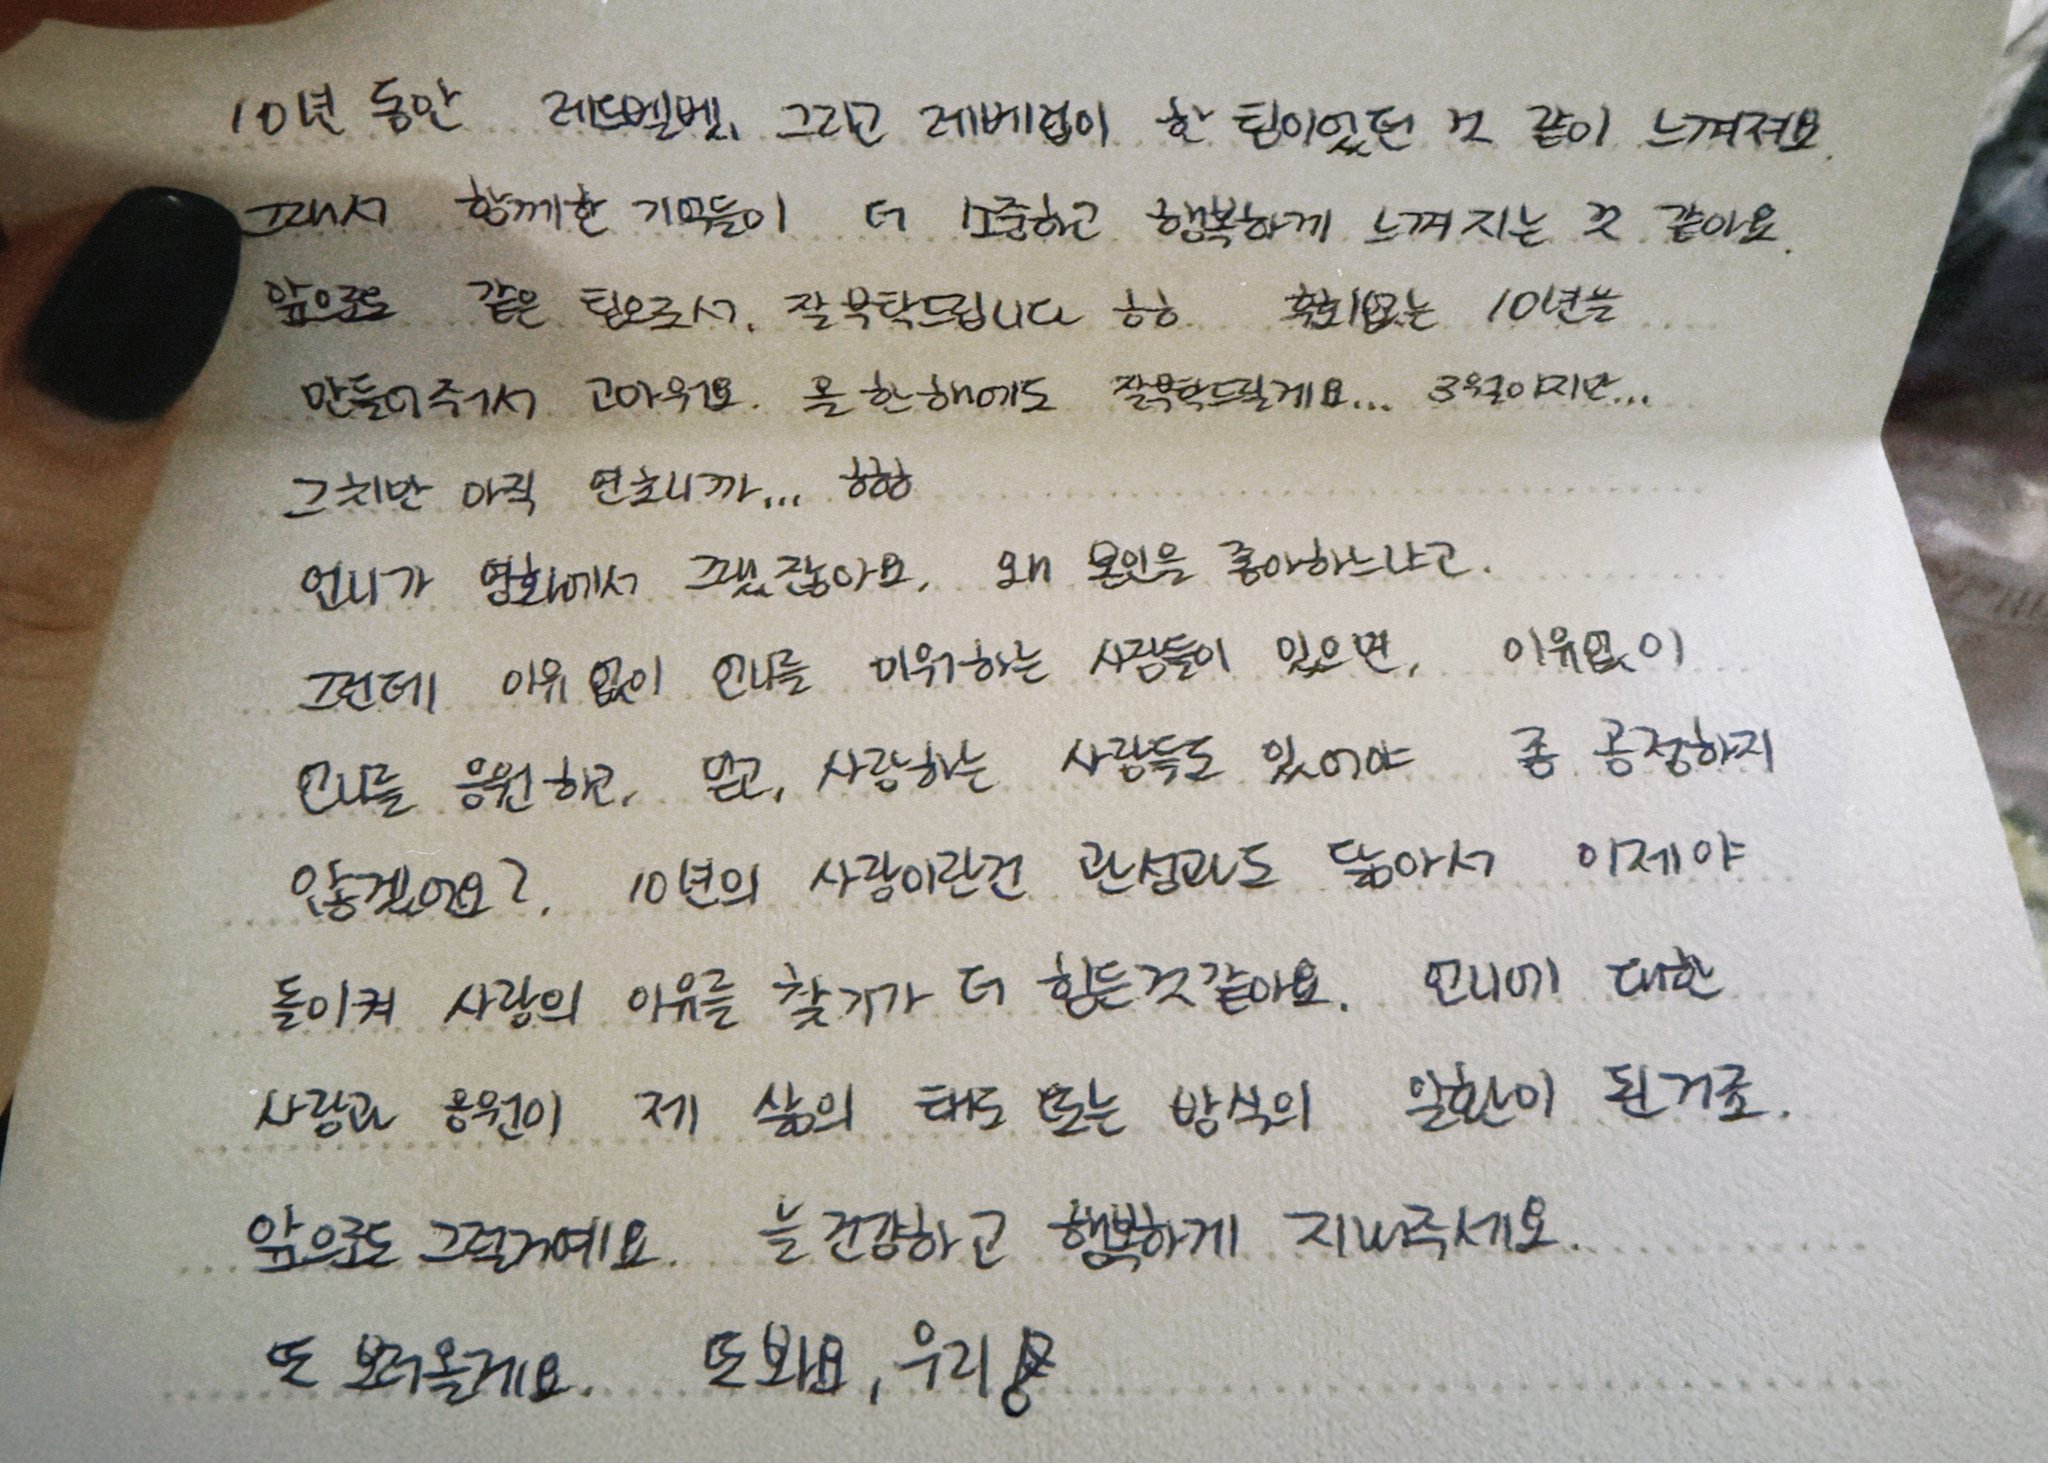 10년 동안 레드벨벳, 그리고 레베럽이 한 팀이었던 것 같이 느껴져요.
그래서 함께한 기억들이 더 소중하고 행복하게 느껴지는 것 같아요.
앞으로도 같은 팀으로서, 잘 부탁드립니다 ㅎㅎ 후회없는 10년을
만들어주셔서 고마워요. 올 한해에도 잘부탁드릴게요... 3월이지만...
그치만 아직 연초니까... ㅎㅎㅎ
언니가 영화에서 그랬잖아요, 왜 본인을 좋아하느냐고.
그런데 이유 없이 언니를 미워하는 사람들이 있으면, 이유없이
언니를 응원하고, 믿고, 사랑하는 사람들도 있어야 좀 공정하지
않겠어요?, 10년의 사랑이란건 관성과도 닮아서 이제야
돌이켜 사랑의 이유를 찾기가 더 힘든것같아요. 언니에 대한
사랑과 응원이 제 삶의 태도 또는 방식의 일환이 된거죠.
앞으로도 그럴거예요. 늘 건강하고 행복하게 지내주세요.
또 보러올게요. 또봐요, 우리